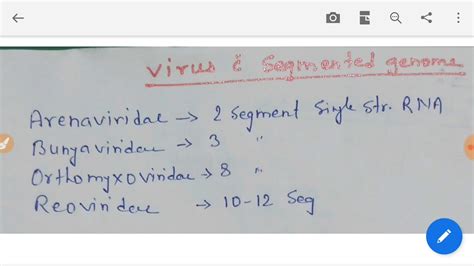 Virus c̄ Segmented genome
Arenaviridae → 2 Segment Single Str. RNA
Bunyaviridae → 3 "
Orthomyxoviridae → 8 "
Reoviridae → 10-12 Seg